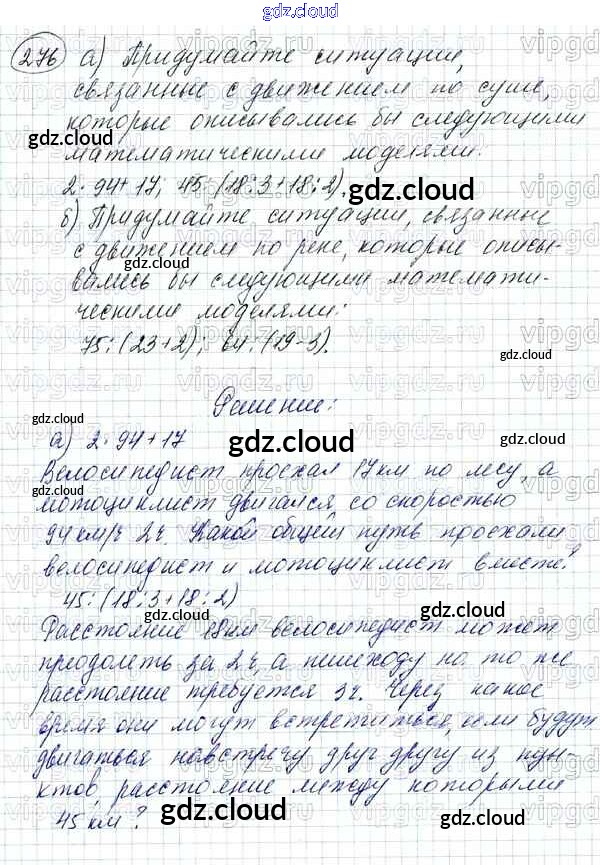 gdz.cloud
276 а) Придумайте ситуации,
связанные с движением по суше,
которые описывались бы следующими
математическими моделями:
2·94+17; 45:(18:3+18:2).
б) Придумайте ситуации, связанные
с движением по реке, которые описы-
вались бы следующими математи-
ческими моделями:
75:(23+2); 64:(19-3).
Решение:
а) 2·94+17
Велосипедист проехал 17км по лесу, а
мотоциклист двигался со скоростью
94 км/ч 2ч. Какой общий путь проехали
велосипедист и мотоциклист вместе?
45:(18:3+18:2)
Расстояние 18км велосипедист может
преодолеть за 2ч, а пешеходу на то же
расстояние требуется 3ч. Через какое
время они могут встретиться, если будут
двигаться навстречу друг другу из пун-
ктов, расстояние между которыми
45 км?